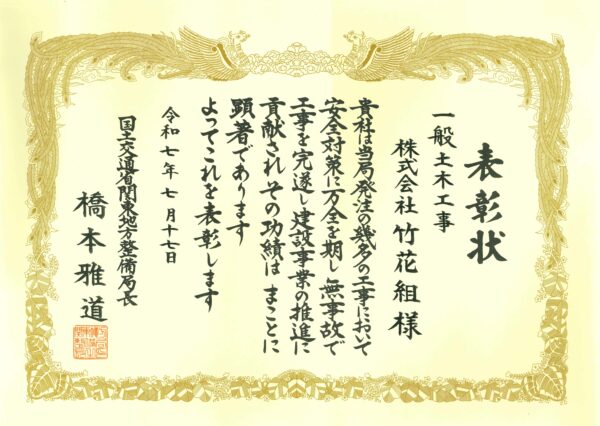 表彰状
一般土木工事
株式会社竹花組様
貴社は当局発注の幾多の工事において
安全対策に万全を期し無事故で
工事を完遂し建設事業の推進に
貢献されその功績はまことに
顕著であります
よってこれを表彰します
令和七年七月十七日
国土交通省関東地方整備局長
橋本雅道